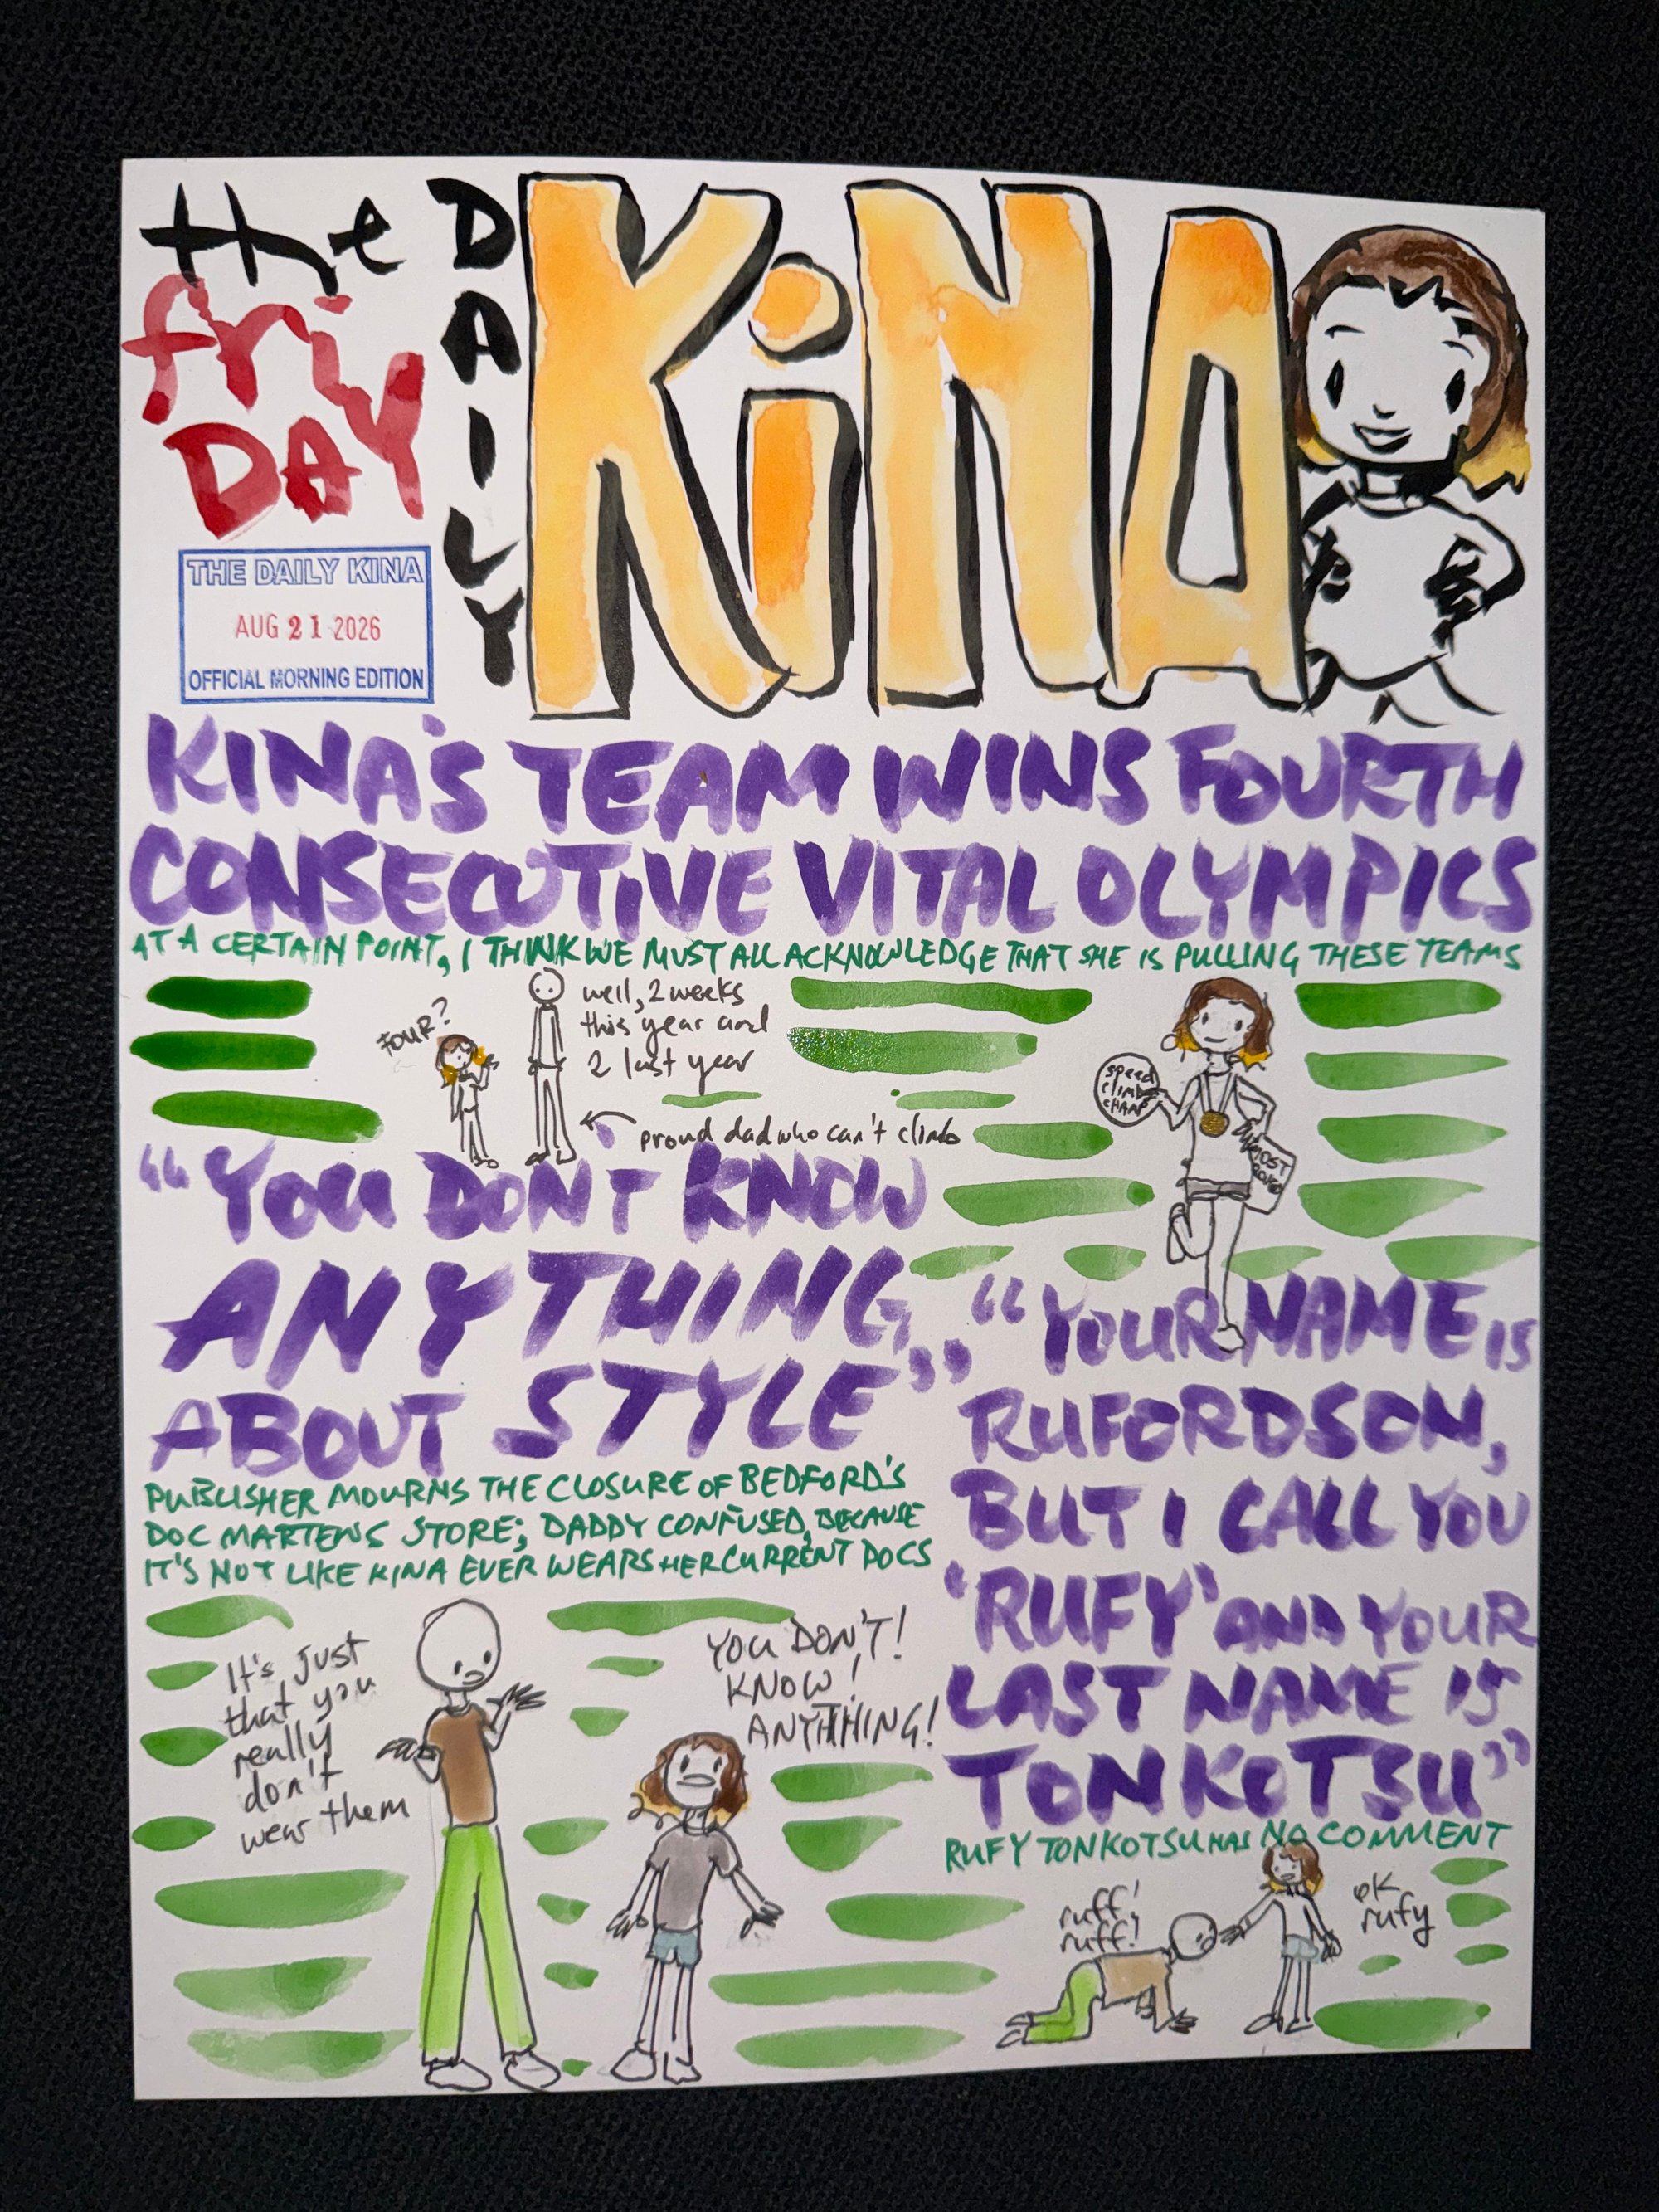 the
fri
DAY
DAILY
KiNA
THE DAILY KINA
AUG 21 2026
OFFICIAL MORNING EDITION
KINA'S TEAM WINS FOURTH
CONSECUTIVE VITAL OLYMPICS
AT A CERTAIN POINT, I THINK WE MUST ALL ACKNOWLEDGE THAT SHE IS PULLING THESE TEAMS
FOUR?
well, 2 weeks
this year and
2 last year
proud dad who can't climb
speed
climb
CHAMP
MOST
"YOU DON'T KNOW
ANYTHING
ABOUT STYLE"
PUBLISHER MOURNS THE CLOSURE OF BEDFORD'S
DOC MARTENS STORE; DADDY CONFUSED, BECAUSE
IT'S NOT LIKE KINA EVER WEARS HER CURRENT DOCS
It's just
that you
really
don't
wear them
YOU DON'T!
KNOW!
ANYTHING!
"YOUR NAME IS
RUFORDSON,
BUT I CALL YOU
'RUFY' AND YOUR
LAST NAME IS
TONKOTSU"
RUFY TONKOTSU HAS NO COMMENT
ruff!
ruff!
ok
rufy